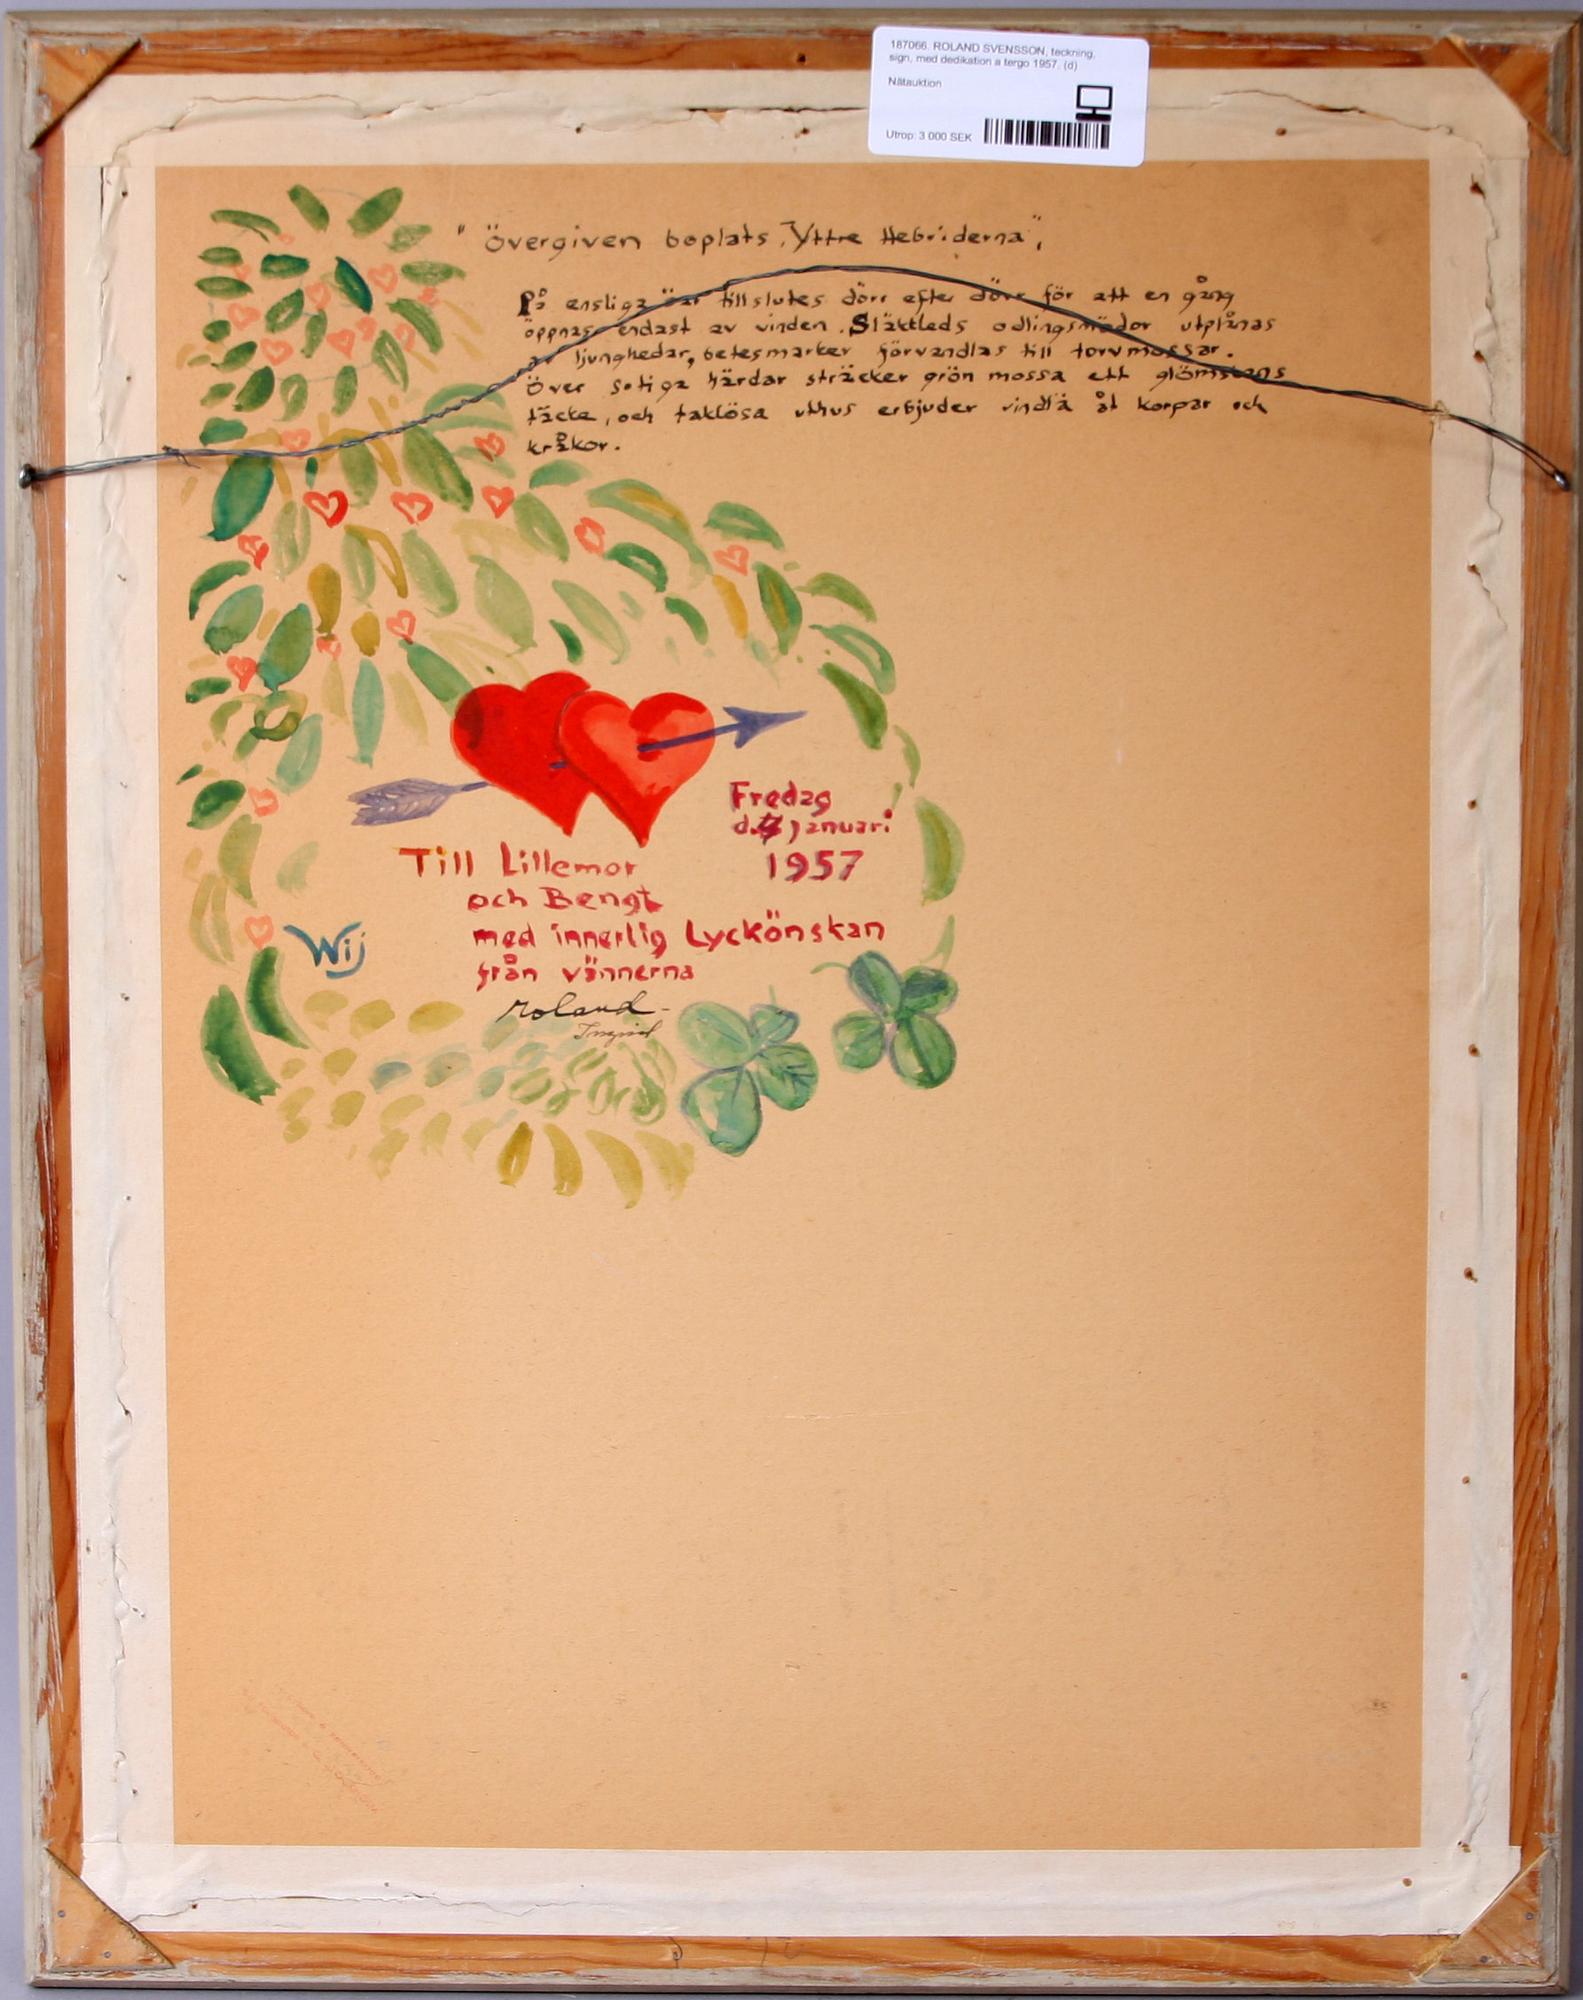 187066. ROLAND SVENSSON, teckning,
sign, med dedikation a tergo 1957. (d)
Nätauktion
Utrop: 3 000 SEK
"Övergiven boplats, Yttre Hebriderna",
På ensliga öar tillslutes dörr efter dörr för att en gång
öppnas endast av vinden. Släktleds odlingsmödor utplånas
av ljunghedar, betesmarker förvandlas till torvmossar.
Över sotiga härdar sträcker grön mossa ett glömskans
täcke, och taklösa uthus erbjuder vindlä åt korpar och
kråkor.
Fredag
d. 4 januari
1957
Till Lillemor
och Bengt
med innerlig Lyckönskan
från vännerna
Wij
Roland -
Ingrid